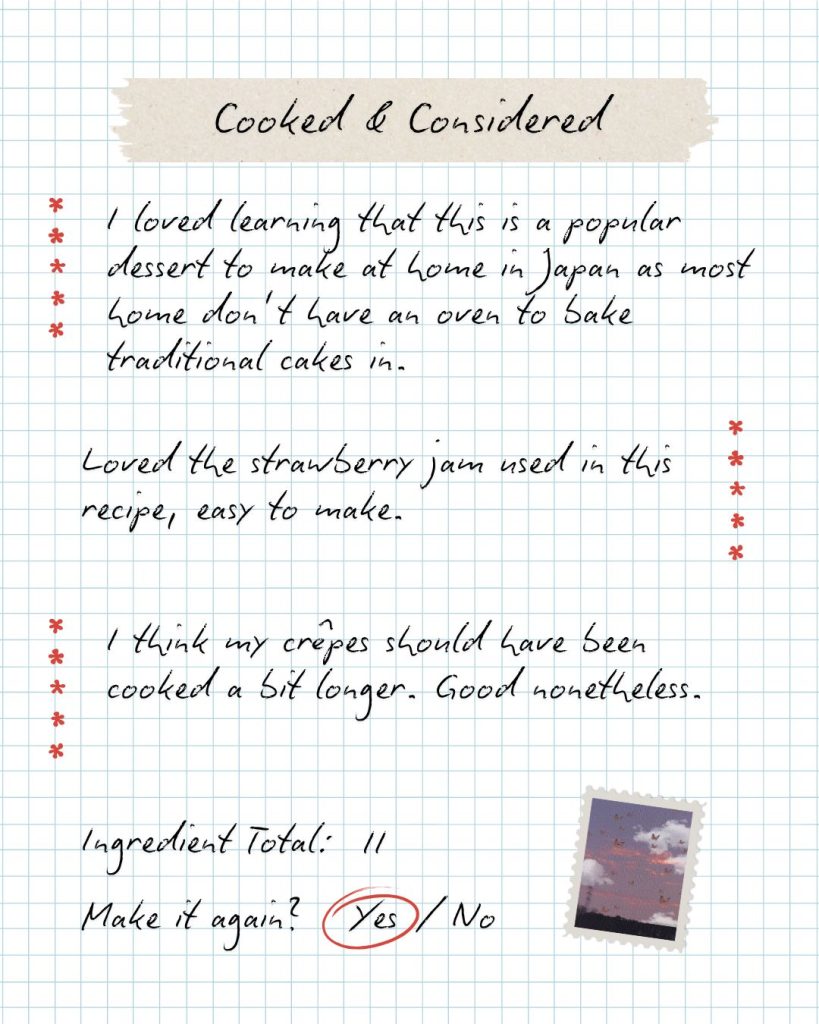 Cooked & Considered
I loved learning that this is a popular
dessert to make at home in Japan as most
home don't have an oven to bake
traditional cakes in.
Loved the strawberry jam used in this
recipe, easy to make.
I think my crêpes should have been
cooked a bit longer. Good nonetheless.
Ingredient Total: 11
Make it again? Yes / No